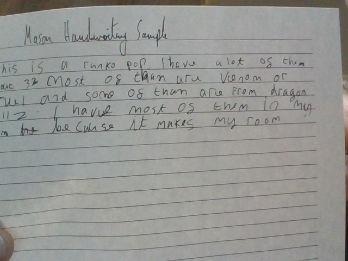 Mason Handwriting Sample
his is a funko pop I have a lot of them
32 most of than are Venom or
and some of than are from dragon
I have most of them in my
becuse it makes my room